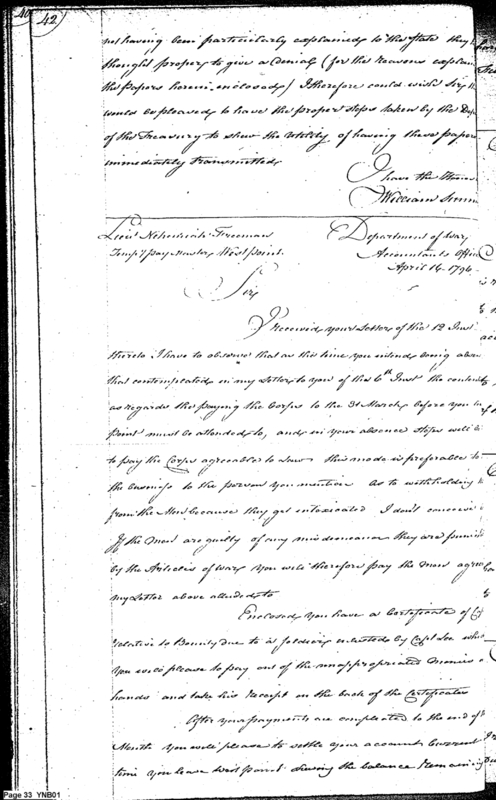 40 42
not having been particularly explained to the State they
thought proper to give a denial (for the reasons explain
the papers herein enclosed) I therefore could wish Sir
would be pleased to have the proper steps taken by the
of the Treasury to shew the Utility of having these papers
immediately transmitted
I have the Honor
William Simm
Lieut Nehemiah Freeman
Tempy Pay Master West Point.
Department of War
Accountants Office
April 14. 1796
Sir
I received your Letter of the 12 Inst
thereto I have to observe that as this time you intend being
that contemplated in my Letter to you of the 6th Inst the
as regards the paying the Corps to the 31 March, before you
point must be attended to, and in your absence steps will
to pay the Corps agreeable to Law this mode is preferable to
the business to the person you mention as to withholding
from the Men because they get intoxicated I don't conceive
If the Men are guilty of any misdemeanor they are
by the Articles of War you will therefore pay the Men
my Letter above alluded to
Enclosed you have a Certificate of
relative to Bounty due to a Soldier enlisted by Capt Lee
you will please to pay out of the unappropriated Monies
hands and take his receipt on the back of the Certificate
After your payments are compleated to the end of
Month you will please to settle your account Current
time you leave West Point leaving the balance
Page 33 YNB01